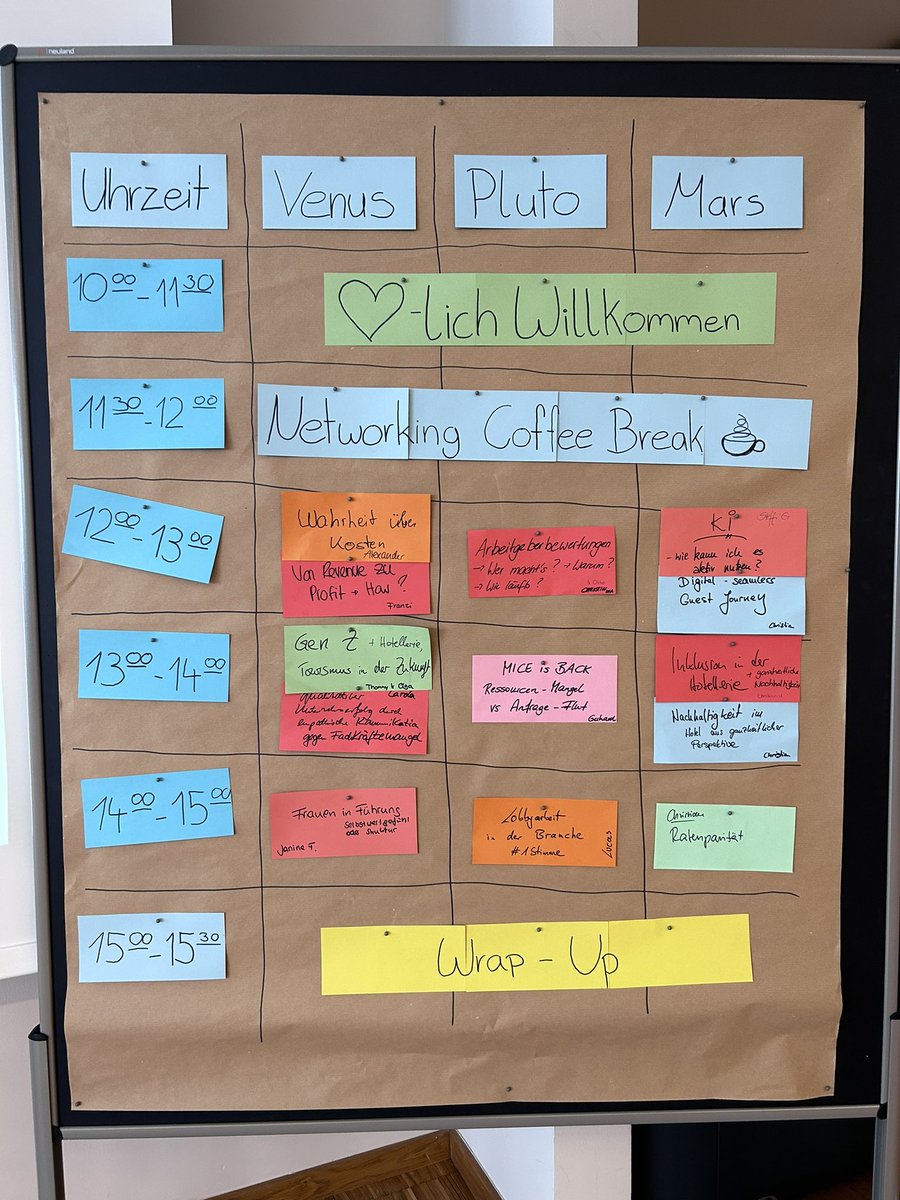 neuland
Uhrzeit
Venus
Pluto
Mars
10⁰⁰-11³⁰
♡-lich Willkommen
11³⁰-12⁰⁰
Networking Coffee Break
12⁰⁰-13⁰⁰
Wahrheit über
Kosten
Alexander
Von Revenue zu
Profit → How?
Franzi
Arbeitgeberbewertungen
→ Wer macht's? → Warum?
→ Wie läuft's?
KI
- wie kann ich es
aktiv nutzen?
Digital - seamless
Guest Journey
Christia
13⁰⁰-14⁰⁰
Gen Z + Hotellerie,
Tourismus in der Zukunft
Thommy & Olga
Carola
empathische Kommunikation
gegen Fachkräftemangel
MICE is BACK
Ressourcen-Mangel
vs Anfrage-Flut
Gerhard
Inklusion in der
Hotellerie + ganzheitliche
Nachhaltigkeit
Nachhaltigkeit im
Hotel aus ganzheitlicher
Perspektive
Christia
14⁰⁰-15⁰⁰
Frauen in Führung
Selbstwertgefühl
oder Struktur
Janina F.
Lobbyarbeit
in der Branche
#1Stimme
Lucas
Christian
Ratenparität
15⁰⁰-15³⁰
Wrap-Up